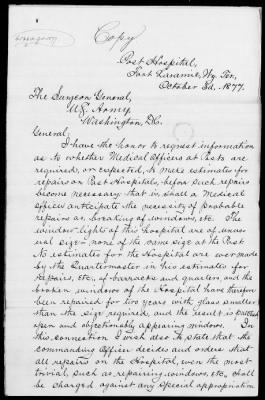 Copy
Post Hospital,
Fort Laramie, Wy. Ter,
October 3d, 1877.
The Surgeon General,
U.S. Army
Washington, D.C.
General,
I have the honor to request information
as to whether Medical Officers at Posts are
required, or expected, to make estimates for
repairs on Post Hospitals, before such repairs
become necessary that is shall a Medical
officer anticipate the necessity of probable
repairs as breaking of windows, etc. The
window lights of this hospital are of unus-
ual size - none of the same size at the Post
No estimates for the Hospital are ever made
by the Quartermaster in his estimates for
repairs, etc., of barracks and quarters, and the
broken windows of the Hospital have therefore
been repaired for two years with glass smaller
than the size required, and the result is
open and objectionably appearing windows. In
this connection I wish also to state that the
commanding Officer decides and orders that
all repairs on the Hospital, even the most
trivial, such as repairing windows, etc., shall
be charged against any special appropriation